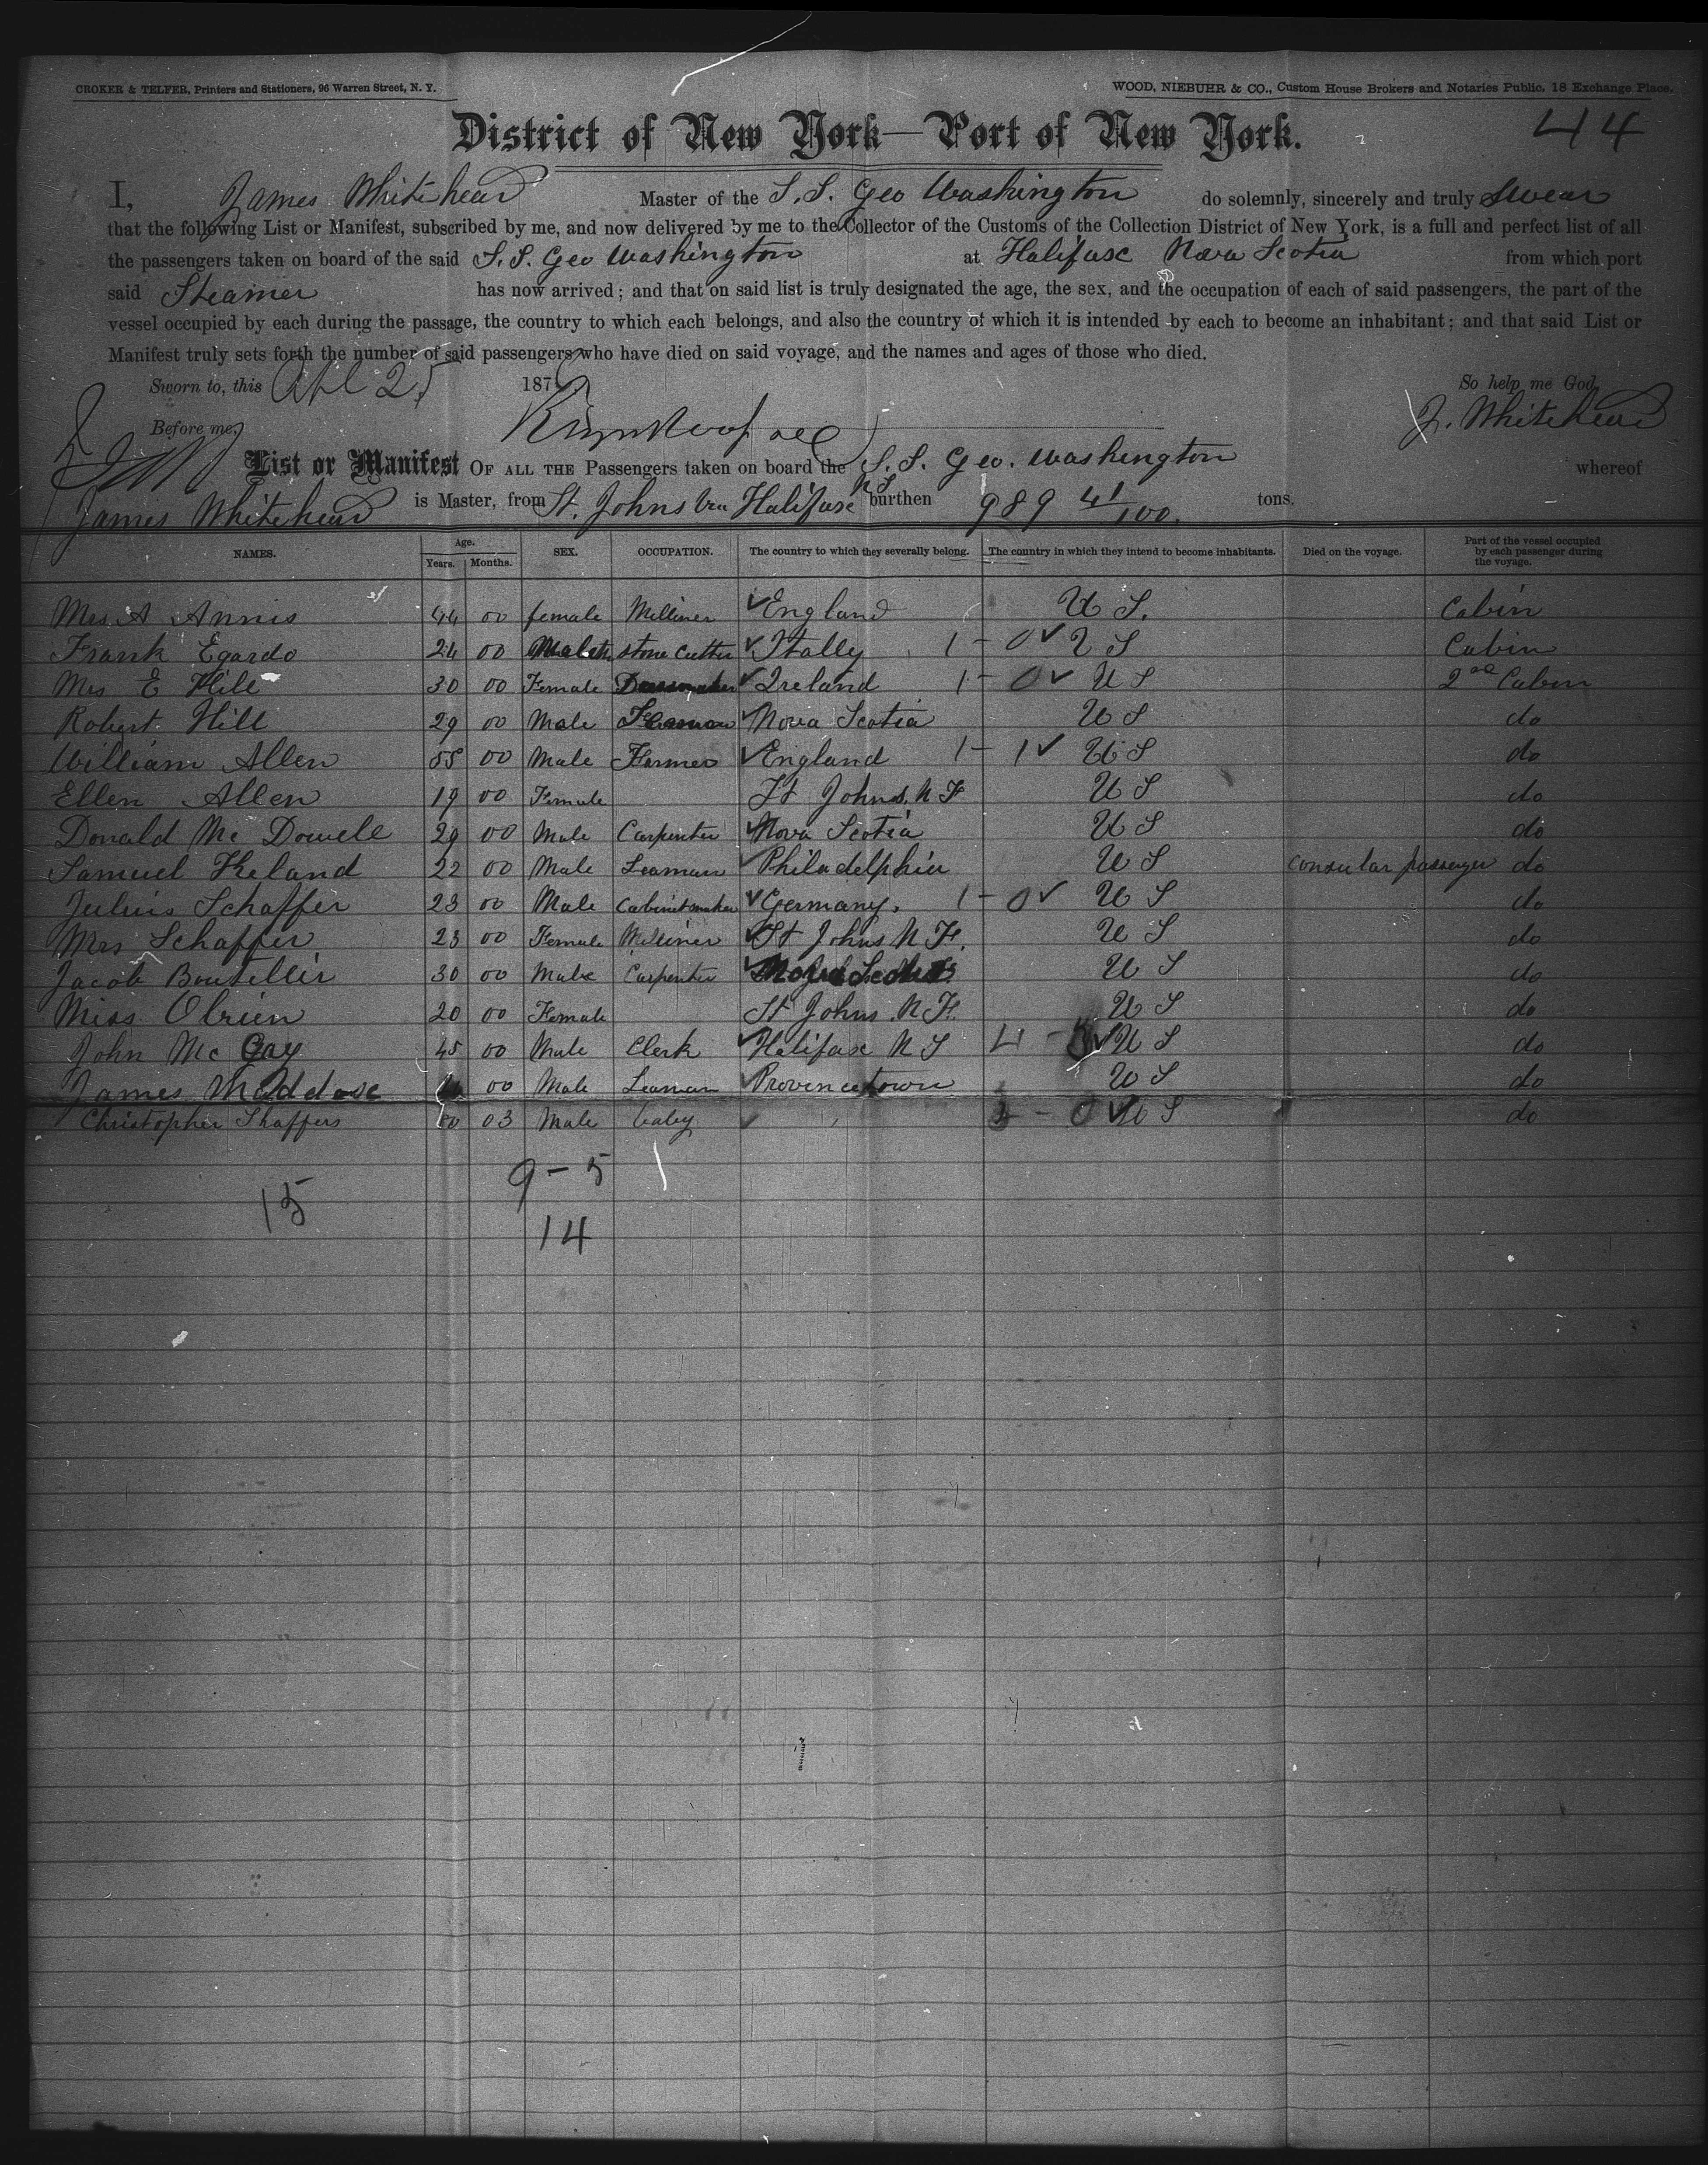 CROKER & TELFER, Printers and Stationers, 96 Warren Street, N. Y.
WOOD, NIEBUHR & CO., Custom House Brokers and Notaries Public, 18 Exchange Place.
District of New York—Port of New York.
44
I, James Whitehead Master of the S. S. Geo Washington do solemnly, sincerely and truly Swear
that the following List or Manifest, subscribed by me, and now delivered by me to the Collector of the Customs of the Collection District of New York, is a full and perfect list of all
the passengers taken on board of the said S. S. Geo Washington at Halifax Nova Scotia from which port
said Steamer has now arrived; and that on said list is truly designated the age, the sex, and the occupation of each of said passengers, the part of the
vessel occupied by each during the passage, the country to which each belongs, and also the country of which it is intended by each to become an inhabitant; and that said List or
Manifest truly sets forth the number of said passengers who have died on said voyage, and the names and ages of those who died.
Sworn to, this Apl 25 187 So help me God,
Before me, J. Whitehead
List or Manifest OF ALL THE Passengers taken on board the S. S. Geo. Washington whereof
James Whitehead is Master, from St. Johns via Halifax NS burthen 989 41/100. tons.
NAMES. Age. Years. Months. SEX. OCCUPATION. The country to which they severally belong. The country in which they intend to become inhabitants. Died on the voyage. Part of the vessel occupied by each passenger during the voyage.
Mrs. A Annis 44 00 female Milliner ✓ England U S. Cabin
Frank Egardo 24 00 Male stone cutter ✓ Itally 1 - 0 ✓ U S Cabin
Mrs E Hill 30 00 Female Dressmaker ✓ Ireland 1 - 0 ✓ U S 2nd Cabin
Robert Hill 29 00 Male ✓ Nova Scotia U S do
William Allen 55 00 Male Farmer ✓ England 1 - 1 ✓ U S do
Ellen Allen 19 00 Female St Johns, N F U S do
Donald Mc Dowell 29 00 Male Carpenter ✓ Nova Scotia U S do
Samuel Heland 22 00 Male Seaman ✓ Philadelphia U S consular passenger do
Julius Schaffer 23 00 Male Cabinetmaker ✓ Germany, 1 - 0 ✓ U S do
Mrs Schaffer 23 00 Female Milliner ✓ St Johns N F. U S do
Jacob Boutellir 30 00 Male Carpenter ✓ Nova Scotia U S do
Miss Obrien 20 00 Female St Johns. N F. U S do
John Mc Gay 45 00 Male Clerk ✓ Halifax N S 4 - ✓ U S do
James Maddox 00 Male Seaman ✓ Provincetown U S do
Christopher Shaffers 00 03 Male baby ✓ - 0 ✓ U S do
9 - 5
15
14